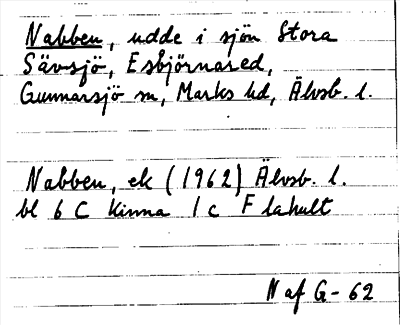 Nabben, udde i sjön Stora
Sävsjö, Esbjörnared,
Gunnarsjö sn, Marks hd, Älvsb. l.
Nabben, ek (1962) Älvsb. l.
bl 6 C Kinna 1 c Flahult
N af G - 62